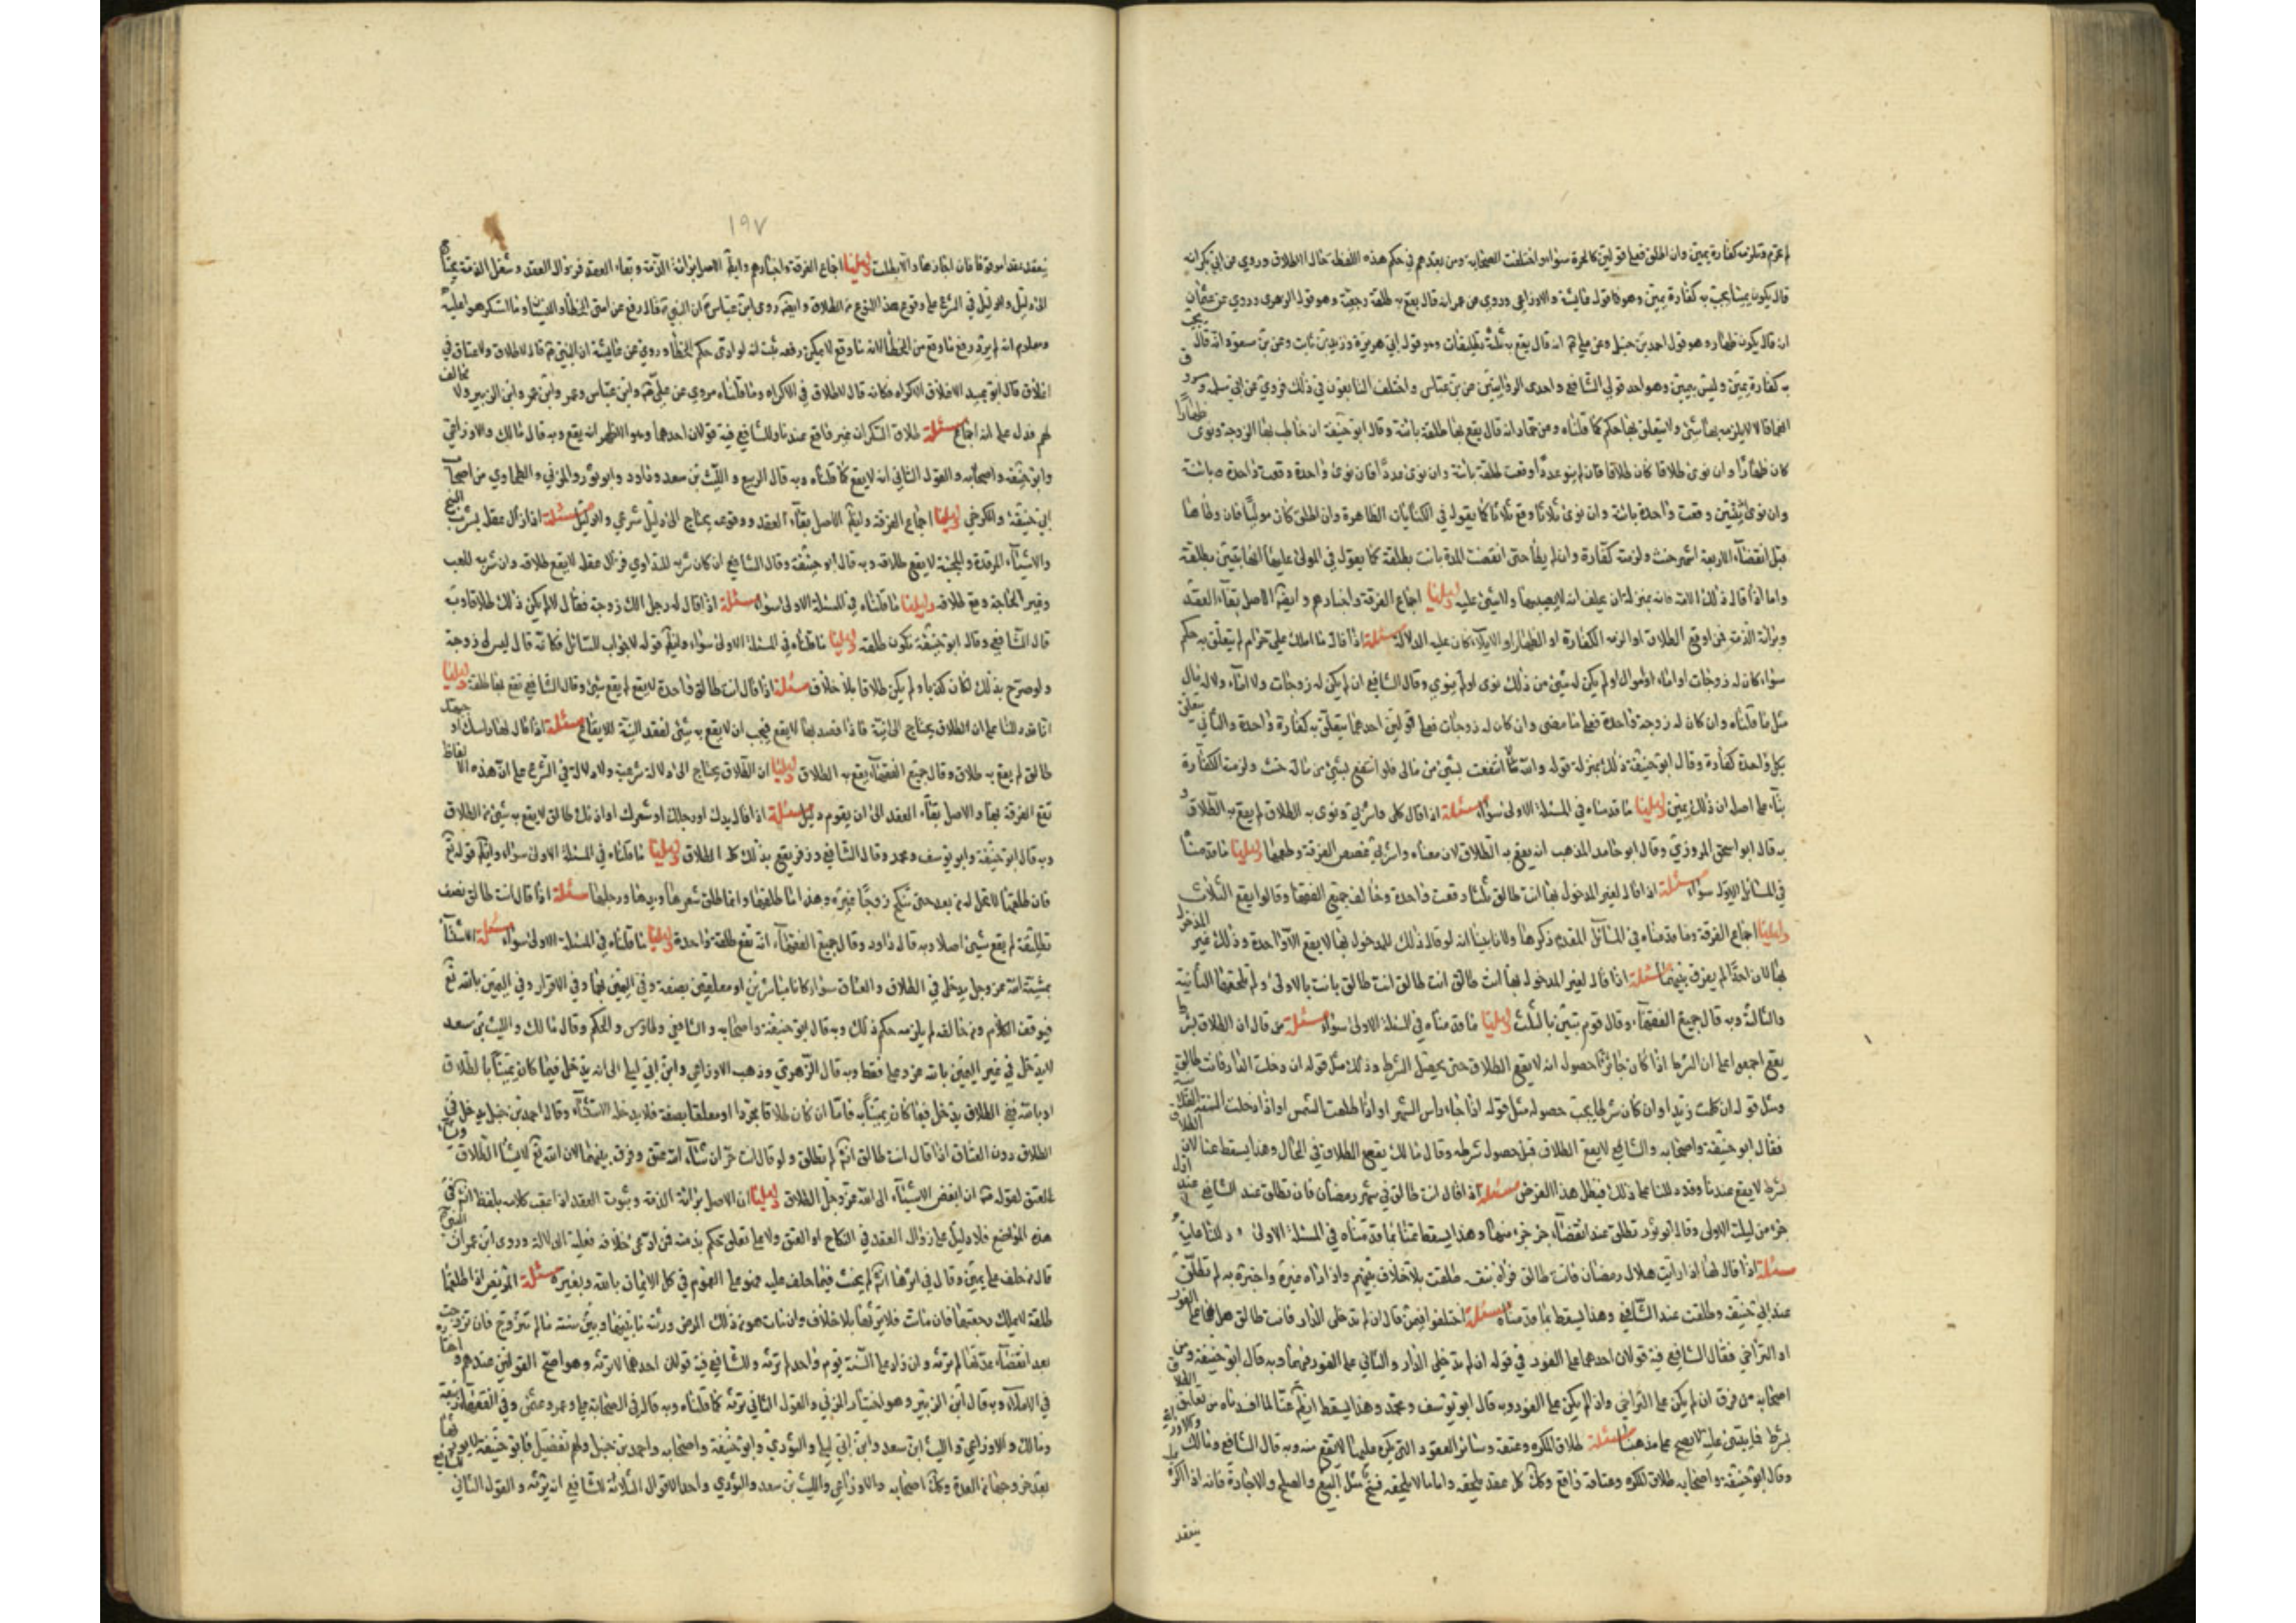 لم تحرم وتلزمه كفارة يمين وان اطلق فعلى قولين كالحرة سواء واختلفت الصحابة ومن بعدهم في حكم هذه اللفظة حال الاطلاق وروي عن ابي بكر انه
قال يكون يمينا يجب به كفارة يمين وهو قول عايشة والاوزاعي وروي عن عمر انه قال يقع به طلقة رجعية وهو قول الزهري وروي عن عثمان
ان قال يكون ظهارا وهو قول احمد بن حنبل وعن علي انه قال يقع به ثلث تطليقات وهو قول ابي هريرة وزيد بن ثابت وعن بن مسعود انه قال يجب
به كفارة يمين وليس بيمين وهو احد قولي الشافعي واحدى الروايتين عن بن عباس واختلف التابعون في ذلك فروي عن ابي سلمة و
انهما قالا لا يلزمه بها شئ ولا يتعلق بها حكم كما قلناه وعن حماد انه قال يقع بها طلقة باينة وقال ابو حنيفة ان خاطب بها الزوجة ونوى ظهارا
كان ظهارا وان نوى طلاقا كان طلاقا فان لم ينو عددا وقعت طلقة باينة وان نوى عددا فان نوى واحدة وقعت واحدة باينة
وان نوى ثنتين وقعت واحدة باينة وان نوى ثلاثا وقع ثلاثا كما يقول في الكنايات الظاهرة وان اطلق كان موليا فان وطأها
قبل انقضاء الاربعة اشهر حنث ولزمته كفارة وان لم يطأ حتى انقضت المدة بانت بطلقة كما يقول في المولى عليها انها تبين بطلقة
واما اذا قال ذلك لامته فانه بمنزلة ان يحلف انه لا يصيبها ولا شئ عليه دليلنا اجماع الفرقة واخبارهم وايضا الاصل بقاء العقد
وبرائة الذمة فمن اوقع الطلاق او الزمه الكفارة او الظهار او الايلاء كان عليه الدلالة مسئلة اذا قال ما املك علي حرام لم يتعلق به حكم
سواء كان له زوجات او اماء او اموال او لم يكن له شئ من ذلك نوى او لم ينوي وقال الشافعي ان لم يكن له زوجات ولا اماء وله مال
مثل ما قلناه وان كان له زوجة واحدة فعلى ما مضى وان كان له زوجات فعلى قولين احدهما يتعلق به كفارة واحدة والثاني يتعلق
بكل واحدة كفارة وقال ابو حنيفة ذلك بمنزلة قوله والله لا انتفعت بشئ من مالي فلو انتفع بشئ من ماله حنث ولزمته الكفارة
بناء على اصله ان ذلك يمين دليلنا ما قدمناه في المسئلة الاولى سواء مسئلة اذا قال كلي واشربي ونوى به الطلاق لم يقع به الطلاق و
به قال ابو اسحق المروزي وقال ابو حامد المذهب انه يقع به الطلاق لان معناه واشربي غصص الفرقة وطعمها دليلنا ما قدمناه
في المسائل الاولة سواء مسئلة اذا قال لغير المدخول بها انت طالق ثلثا وقعت واحدة وخالف جميع الفقهاء وقالوا يقع الثلاث
دليلنا اجماع الفرقة وما قدمناه في المسائل المقدم ذكرها ولانا بينا انه لو قال ذلك للمدخول بها لا يقع الا واحدة وذلك غير المدخول
بها لان احدا لم يفرق بينهما مسئلة اذا قال لغير المدخول بها انت طالق انت طالق انت طالق بانت بالاولى ولم تلحقها الثانية
والثالثة وبه قال جميع الفقهاء وقال قوم تبين بالثلث دليلنا ما قدمناه في المسئلة الاولى سواء مسئلة من قال ان الطلاق بشرط
يقع اجمعوا على ان الشرط اذا كان جائزا حصوله انه لا يقع الطلاق حتى يحصل الشرط وذلك مثل قوله ان دخلت الدار فانت طالق
ومثل قوله ان كلمت زيدا وان كان شرطا يجب حصوله مثل قوله اذا جاء رأس الشهر او اذا طلعت الشمس او اذا دخلت السنة
فقال ابو حنيفة واصحابه والشافعي لا يقع الطلاق قبل حصول شرطه وقال مالك يقع الطلاق في الحال وهذا يسقط عنا لان الطلاق
بشرط لا يقع عندنا وقد دللنا على ذلك فبطل هذا الفرض مسئلة اذا قال انت طالق في شهر رمضان فان تطلق عند الشافعي عند اول
جزء من ليلة الاولى وقال ابو ثور تطلق عند انقضاء اخر جزء منها وهذا يسقط عنا بما قدمناه في المسئلة الاولى
مسئلة اذا قال لها اذا رايت هلال رمضان فانت طالق فراه بنفسه طلقت بلا خلاف بينهم واذا راه غيره واخبره به لم تطلق
عند ابي حنيفة وطلقت عند الشافعي وهذا يسقط بما قدمناه مسئلة اختلفوا فيمن قال ان لم تدخلي الدار فانت طالق هل هي على الفور
او التراخي فقال الشافعي فيه قولان احدهما على الفور في قوله ان لم تدخلي الدار والثاني على الفور فيهما وبه قال ابو حنيفة ومن
اصحابه من فرق ان لم يكن على التراخي وان لم يكن على الفور وبه قال ابو يوسف ومحمد وهذا يسقط ايضا عنا لما افسدناه من تعليق الطلاق
بشرط فما يبتنى عليه لا يصح على مذهبنا مسئلة طلاق المكره وعتقه وسائر العقود التي يكره عليها لا يقع منه وبه قال الشافعي ومالك والاوزاعي
وقال ابو حنيفة واصحابه طلاق المكره وعتاقه واقع وكذلك كل عقد يلحقه فاما ما لا يلحقه فسخ مثل البيع والصلح والاجارة فانه اذا اكره
ينعقد
١٩٧
ينعقد عقدا موقوفا فان اجازها والا بطلت دليلنا اجماع الفرقة واخبارهم وايضا الاصل برائة الذمة وبقاء العقد فزوال العقد وشغل الذمة يحتاج
الى دليل ولا دليل في الشرع على وقوع هذا النوع من الطلاق وايضا روى ابن عباس ان النبي قال رفع عن امتي الخطأ والنسيان وما استكرهوا عليه
ومعلوم انه لم يرد رفع ما وقع من الخطأ لانه ما وقع لا يمكن رفعه ثبت انه اراد حكم الخطأ وروي عن عايشة ان النبي قال لا طلاق ولا عتاق في
اغلاق قال ابو عبيد الاغلاق الاكراه فكانه قال لا طلاق في الاكراه وما قلناه مروي عن علي وابن عباس وعمر وابن عمر وابن الزبير ولا مخالف
لهم فدل على انه اجماع مسئلة طلاق السكران غير واقع عندنا وللشافعي فيه قولان احدهما وهو الاظهر انه يقع وبه قال مالك والاوزاعي
وابو حنيفة واصحابه والقول الثاني انه لا يقع كما قلناه وبه قال الربيع والليث بن سعد وداود وابو ثور والمزني والطحاوي من اصحاب
ابي حنيفة والكرخي دليلنا اجماع الفرقة وايضا الاصل بقاء العقد ووقوعه يحتاج الى دليل شرعي ولا دليل مسئلة اذا زال عقله بشرب البنج
والاشياء المرقدة والمجننة لا يقع طلاقه وبه قال ابو حنيفة وقال الشافعي ان كان شربه للتداوي فزال عقله لا يقع طلاقه وان شربه للعب
وغير الحاجة وقع طلاقه دليلنا ما قلناه في المسئلة الاولى سواء مسئلة اذا قال له رجل الك زوجة فقال لا لم يكن ذلك طلاقا وبه
قال الشافعي وقال ابو حنيفة تكون طلقة دليلنا ما قلناه في المسئلة الاولى سواء وايضا قوله لا جواب السائل فكانه قال ليس لي زوجة
ولو صرح بذلك لكان كذبا ولم يكن طلاقا بلا خلاف مسئلة اذا قال انت طالق واحدة لا يقع لم يقع شئ وقال الشافعي تقع بها طلقة دليلنا
انا قد دللنا على ان الطلاق يحتاج الى نية فاذا قصد بها لا يقع فيجب ان لا يقع به شئ لفقد النية للايقاع مسئلة اذا قال لها راسك او
طالق لم يقع به طلاق وقال جميع الفقهاء يقع به الطلاق دليلنا ان الطلاق يحتاج الى دلالة شرعية ولا دلالة في الشرع على ان هذه الالفاظ
تقع الفرقة بها والاصل بقاء العقد الى ان يقوم دليل مسئلة اذا قال يدك او رجلك او شعرك او اذنك طالق لا يقع به شئ من الطلاق
وبه قال ابو حنيفة وابو يوسف ومحمد وقال الشافعي وزفر يقع بذلك كله الطلاق دليلنا ما قلناه في المسئلة الاولى سواء وايضا قوله تع
فان طلقها فلا تحل له من بعد حتى تنكح زوجا غيره وهذا ما طلقها وانما طلق شعرها ويدها ورجلها مسئلة اذا قال انت طالق نصف
تطليقة لم يقع شئ اصلا وبه قال داود وقال جميع الفقهاء انه تقع طلقة واحدة دليلنا ما قلناه في المسئلة الاولى سواء مسئلة الاستثناء
بمشية الله عز وجل يدخل في الطلاق والعتاق سواء كانا مباشرين او معلقين بصفة وفي اليمين بهما وفي الاقرار وفي اليمين بالله تع
فيوقف الكلام ومن خالفه لم يلزمه حكم ذلك وبه قال ابو حنيفة واصحابه والشافعي وطاوس والحكم وقال مالك والليث بن سعد
لا يدخل في غير اليمين بالله عز وعلا فقط وبه قال الزهري وذهب الاوزاعي وابن ابي ليلى الى انه يدخل فيما كان يمينا بالطلاق
او بالله فدخل الطلاق يدخل فيما كان يمينا به فاما ان كان طلاقا مجردا او معلقا بصفة فلا يدخله الاستثناء وقال احمد بن حنبل يدخل في
الطلاق دون العتاق اذا قال انت طالق انشاء الله لم تطلق ولو قال انت حر ان شاء الله عتق وفرق بينهما لان الله تع لا يشاء الطلاق
العتق لقوله ان ابغض الاشياء الى الله عز وجل الطلاق دليلنا ان الاصل برائة الذمة وثبوت العقد اذا عقب كلامه بلفظ انشاء الله في
هذه المواضع فلا دليل على زوال العقد في النكاح او العتق ولا على تعلق حكم بذمته فمن ادعى خلافه فعليه الدلالة وروى ابن عمر ان النبي
قال من حلف على يمين وقال في اثرها انشاء الله لم يحنث فيما حلف عليه فهو على العموم في كل الايمان بالله وبغيره مسئلة المريض اذا طلقها
طلقة لا يملك رجعتها فان ماتت فلا يرثها بلا خلاف وان مات هو من ذلك المرض ورثته ما بينها وبين سنة ما لم تتزوج فان تزوجت
بعد انقضاء عدتها لم ترثه وان زاد على السنة يوم واحد لم ترثه وللشافعي فيه قولان احدهما لا ترثه وهو اصح القولين عندهم و
في الاملاء وبه قال ابن الزبير وهو اختيار المزني والقول الثاني ترثه كما قلناه وبه قال في الصحابة علي وعمر وعثمان وفي الفقهاء ربيعة
ومالك والاوزاعي والليث ابن سعد وابن ابي ليلى والثوري وابو حنيفة واصحابه واحمد بن حنبل ولهم تفصيل فابو حنيفة
بعد خروجها من العدة وكذلك اصحابه والاوزاعي والليث بن سعد والثوري واحد الاقوال الثلاثة للشافعي انه ترثه والقول الثاني